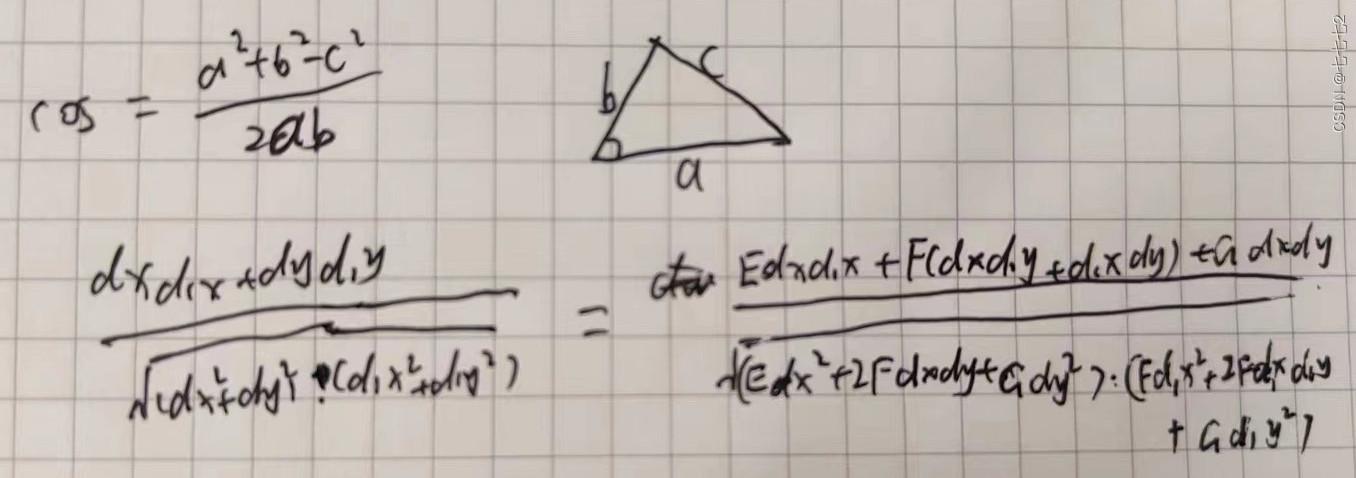 cos = (a²+b²-c²)/(2ab)
b
c
a
(dxd₁x+dyd₁y)/√((dx²+dy²)·(d₁x²+d₁y²)) = (Edxd₁x+F(dxd₁y+d₁xdy)+Gdxdy)/√((Edx²+2Fdxdy+Gdy²)·(Ed₁x²+2Fd₁xd₁y
+Gd₁y²)
CSDN @七七七2